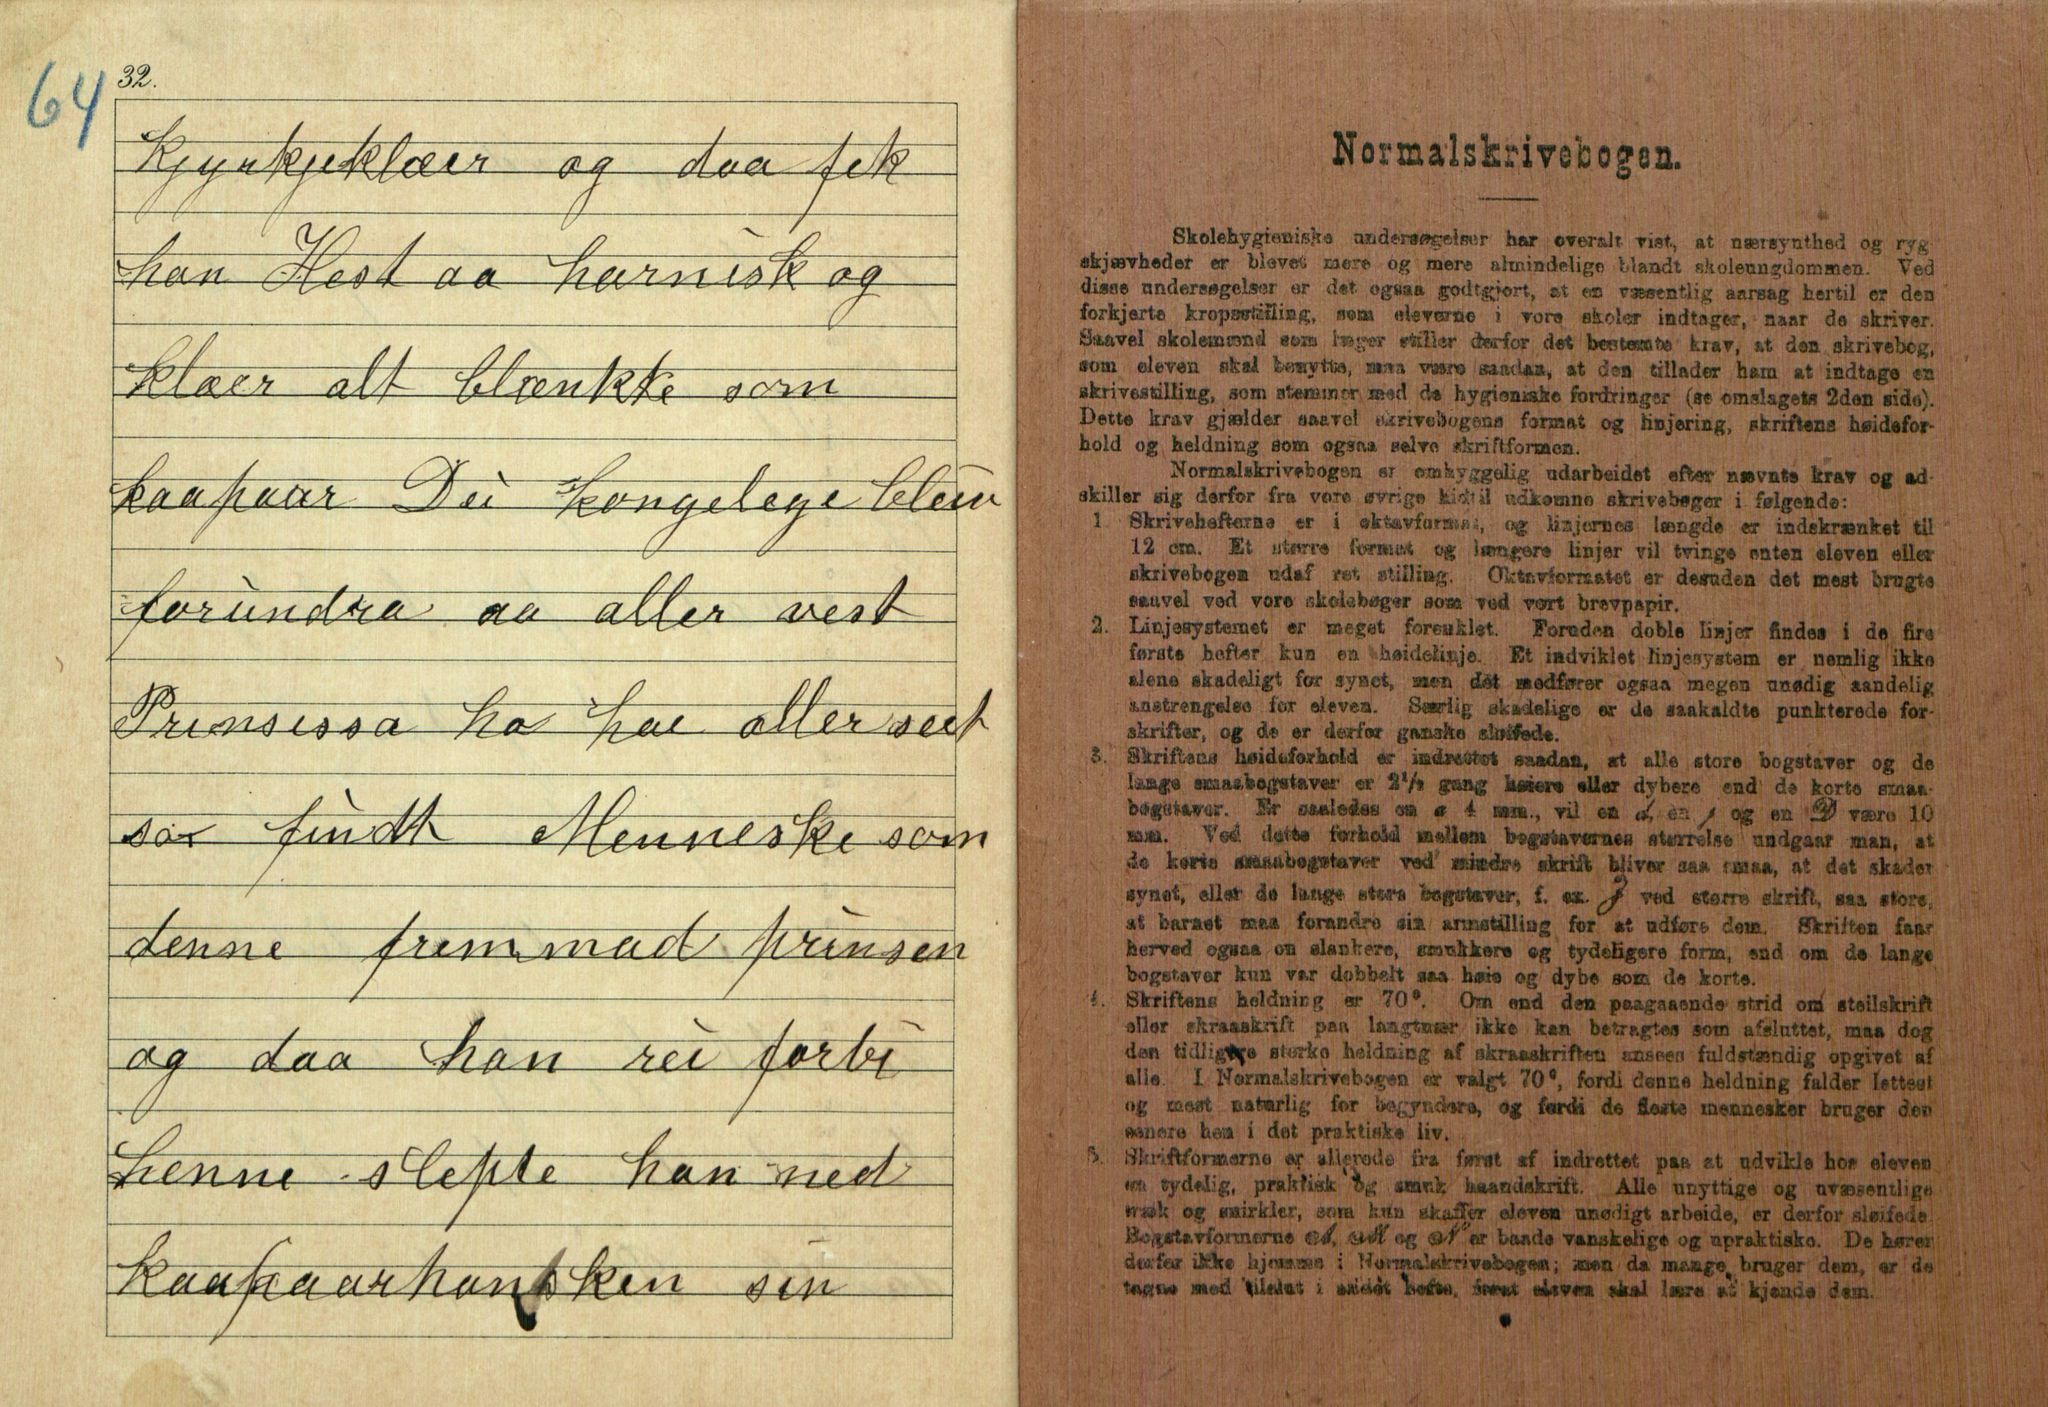 64
32.
kjyrkjeklæer og daa fek
han Hest aa harnisk og
klæer alt blænkte som
kaapaar Dei kongelege bleiv
forundra aa aller vest
Prinsessa ha hae aller seet
sor findt Menneske som
denne fremmad prinsen
og daa han rei forbi
henne slepte han ned
kaapaarhansken sin
Normalskrivebogen.
Skolehygieniske undersøgelser har overalt vist, at nærsynthed og ryg-
skjævheder er blevet mere og mere almindelige blandt skoleungdommen. Ved
disse undersøgelser er det ogsaa godtgjort, at en væsentlig aarsag hertil er den
forkjerte kropsstilling, som eleverne i vore skoler indtager, naar de skriver.
Saavel skolemænd som læger stiller derfor det bestemte krav, at den skrivebog,
som eleven skal benytte, maa være saadan, at den tillader ham at indtage en
skrivestilling, som stemmer med de hygieniske fordringer (se omslagets 2den side).
Dette krav gjælder saavel skrivebogens format og linjering, skriftens høidefor-
hold og heldning som ogsaa selve skriftformen.
Normalskrivebogen er omhyggelig udarbeidet efter nævnte krav og ad-
skiller sig derfor fra vore øvrige hidtil udkomne skrivebøger i følgende:
1. Skrivehefterne er i oktavformat, og linjernes længde er indskrænket til
12 cm. Et større format og længere linjer vil tvinge enten eleven eller
skrivebogen udaf ret stilling. Oktavformatet er desuden det mest brugte
saavel ved vore skolebøger som ved vort brevpapir.
2. Linjesystemet er meget forenklet. Foruden doble linjer findes i de fire
første hefter kun en høidelinje. Et indviklet linjesystem er nemlig ikke
alene skadeligt for synet, men det medfører ogsaa megen unødig aandelig
anstrengelse for eleven. Særlig skadelige er de saakaldte punkterede for-
skrifter, og de er derfor ganske sløifede.
3. Skriftens høideforhold er indrettet saadan, at alle store bogstaver og de
lange smaabogstaver er 2½ gang høiere eller dybere end de korte smaa-
bogstaver. Er saaledes en a 4 mm., vil en d, en j og en D være 10
mm. Ved dette forhold mellem bogstavernes størrelse undgaar man, at
de korte smaabogstaver ved mindre skrift bliver saa smaa, at det skader
synet, eller de lange store bogstaver, f. ex. J ved større skrift, saa store,
at barnet maa forandre sin armstilling for at udføre dem. Skriften faar
herved ogsaa en slankere, smukkere og tydeligere form, end om de lange
bogstaver kun var dobbelt saa høie og dybe som de korte.
4. Skriftens heldning er 70°. Om end den paagaaende strid om steilskrift
eller skraaskrift paa langtnær ikke kan betragtes som afsluttet, maa dog
den tidligere sterke heldning af skraaskriften ansees fuldstændig opgivet af
alle. I Normalskrivebogen er valgt 70°, fordi denne heldning falder lettest
og mest naturlig for begyndere, og fordi de fleste mennesker bruger den
senere hen i det praktiske liv.
5. Skriftformerne er allerede fra først af indrettet paa at udvikle hos eleven
en tydelig, praktisk og smuk haandskrift. Alle unyttige og uvæsentlige
træk og snirkler, som kun skaffer eleven unødigt arbeide, er derfor sløifede.
Bogstavformerne A, M og N er baade vanskelige og upraktiske. De hører
derfor ikke hjemme i Normalskrivebogen; men da mange bruger dem, er de
tagne med tilslut i sidste hefte, forat eleven skal lære at kjende dem.